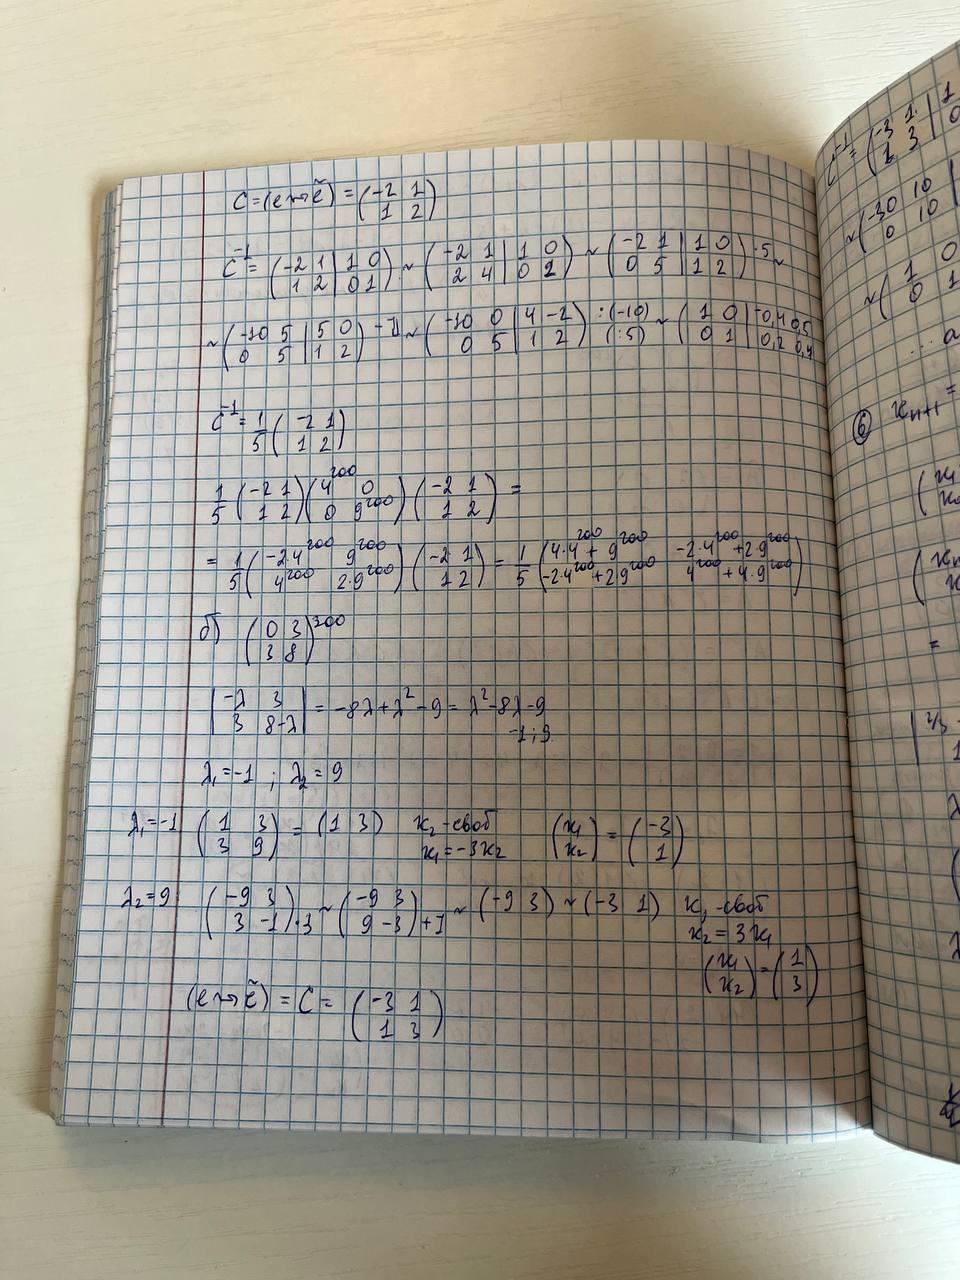 C = (e→ẽ) = (-2 1; 1 2)
C⁻¹ = (-2 1 | 1 0; 1 2 | 0 1) ~ (-2 1 | 1 0; 2 4 | 0 2) ~ (-2 1 | 1 0; 0 5 | 1 2) ·5 ~
~ (-10 5 | 5 0; 0 5 | 1 2) -II ~ (-10 0 | 4 -2; 0 5 | 1 2) :(-10) (:5) ~ (1 0 | -0,4 0,5; 0 1 | 0,2 0,4
C⁻¹ = 1/5 (-2 1; 1 2)
1/5 (-2 1; 1 2) (4²⁰⁰ 0; 0 9²⁰⁰) (-2 1; 1 2) =
= 1/5 (-2·4²⁰⁰ 9²⁰⁰; 4²⁰⁰ 2·9²⁰⁰) (-2 1; 1 2) = 1/5 (4·4²⁰⁰ + 9²⁰⁰ -2·4²⁰⁰ + 2·9²⁰⁰; -2·4²⁰⁰ + 2·9²⁰⁰ 4²⁰⁰ + 4·9²⁰⁰)
б) (0 3; 3 8)³⁰⁰
|-λ 3; 3 8-λ| = -8λ + λ² - 9 = λ² - 8λ - 9
-1; 9
λ₁ = -1 ; λ₂ = 9
λ₁ = -1 (1 3; 3 9) = (1 3) x₂ - своб x₁ = -3x₂ (x₁; x₂) = (-3; 1)
λ₂ = 9 (-9 3; 3 -1) ·3 ~ (-9 3; 9 -3) +I ~ (-9 3) ~ (-3 1) x₁ - своб
x₂ = 3x₁
(x₁; x₂) = (1; 3)
(e→ẽ) = C = (-3 1; 1 3)
C⁻¹ = (-3 1 | 1; 1 3 | 0
~ (-30 10 |; 0 10
~ (1 0; 0 1
... a
⑥ xₙ₊₁ =
=
| 2/3
1